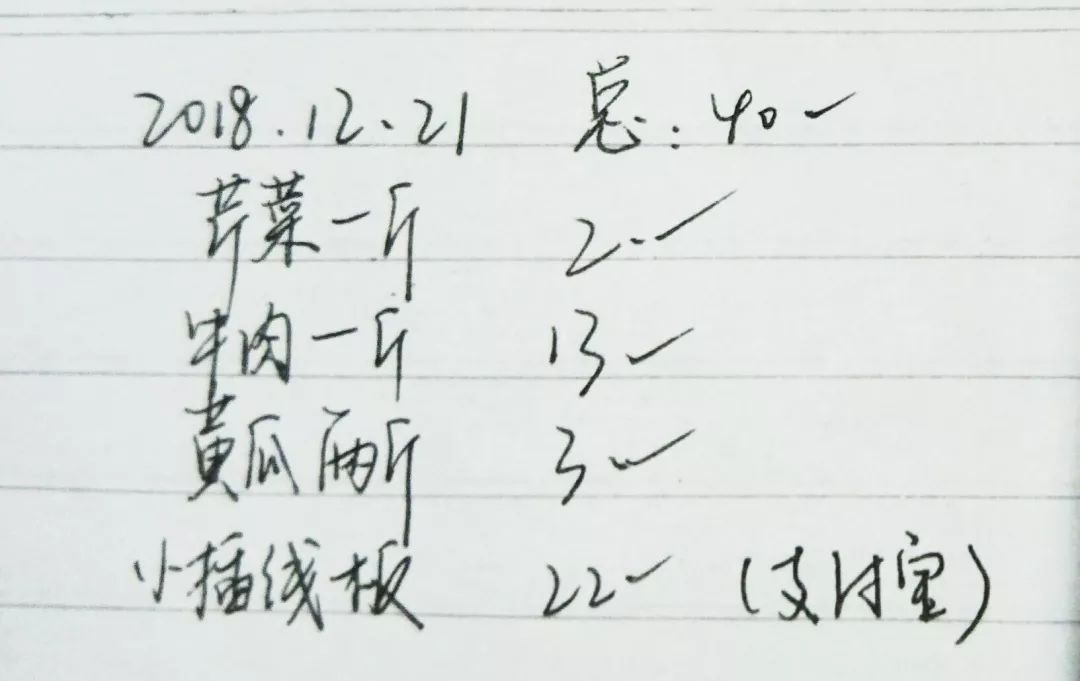 2018.12.21 总:40-
芹菜一斤 2.-
牛肉一斤 13-
黄瓜两斤 3.-
小插线板 22- (支付宝)